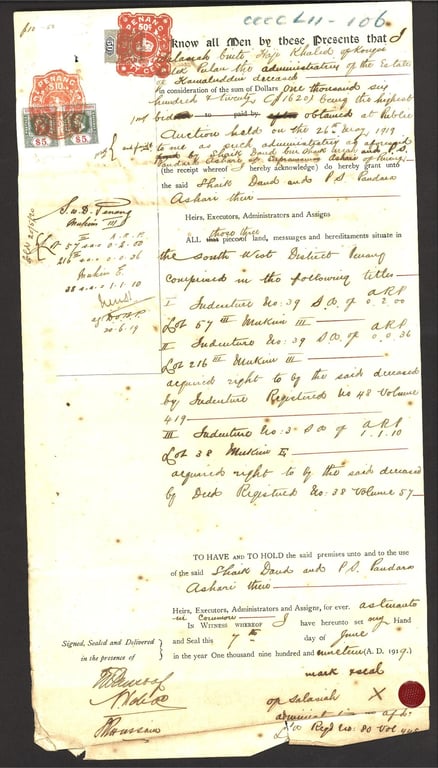 $10-00
CCCCLII - 106
PENANG
50¢
PENANG
$10
$5 $5
Know all Men by these Presents that I
Salasiah binti Haji Khaled of
Pulau the administratrix of the Estate
of Kamaludden deceased
in consideration of the sum of Dollars One thousand six
hundred & twenty ($1620) being the highest
bid to paid by obtained at Public
Auction held on the 26th May 1919
to me as such administratrix as aforesaid
paid by Shaik Daud bin Shaik and P.S.
Pandara Ashari of Penang
(the receipt whereof I hereby acknowledge) do hereby grant unto
the said Shaik Daud and P S Pandara
Ashari
Heirs, Executors, Administrators and Assigns
ALL those three
that piece of land, messages and hereditaments situate in
the South West District Penang
comprised in the following titles
I Indenture No: 39 S.D. of A R P 0. 2. 00
Lot 57 III Mukim III
II Indenture No: 39 S.D. of A R P 0. 0. 36
Lot 216 III Mukim III
acquired right to by the said deceased
by Indenture Registered No 48 Volume
419
III Indenture No: 3 S.D. of A R P 1. 1. 10
Lot 38 Mukim E
acquired right to by the said deceased
by Deed Registered No: 38 Volume 57
S.W.D. Penang
Mukim III
57 0. 2. 00
216 0. 0. 36
Mukim E
38 1. 1. 10
20-6-19
TO HAVE AND TO HOLD the said premises unto and to the use
of the said Shaik Daud and P.S. Pandara
Ashari
Heirs, Executors, Administrators and Assigns, for ever. as tenants
in common
IN WITNESS WHEREOF I have hereunto set my Hand
and Seal this 7th day of June
in the year One thousand nine hundred and nineteen (A. D. 1919.)
Signed, Sealed and Delivered
in the presence of
mark & seal
of Salasiah X
administratrix
Regd No: 80 Vol.